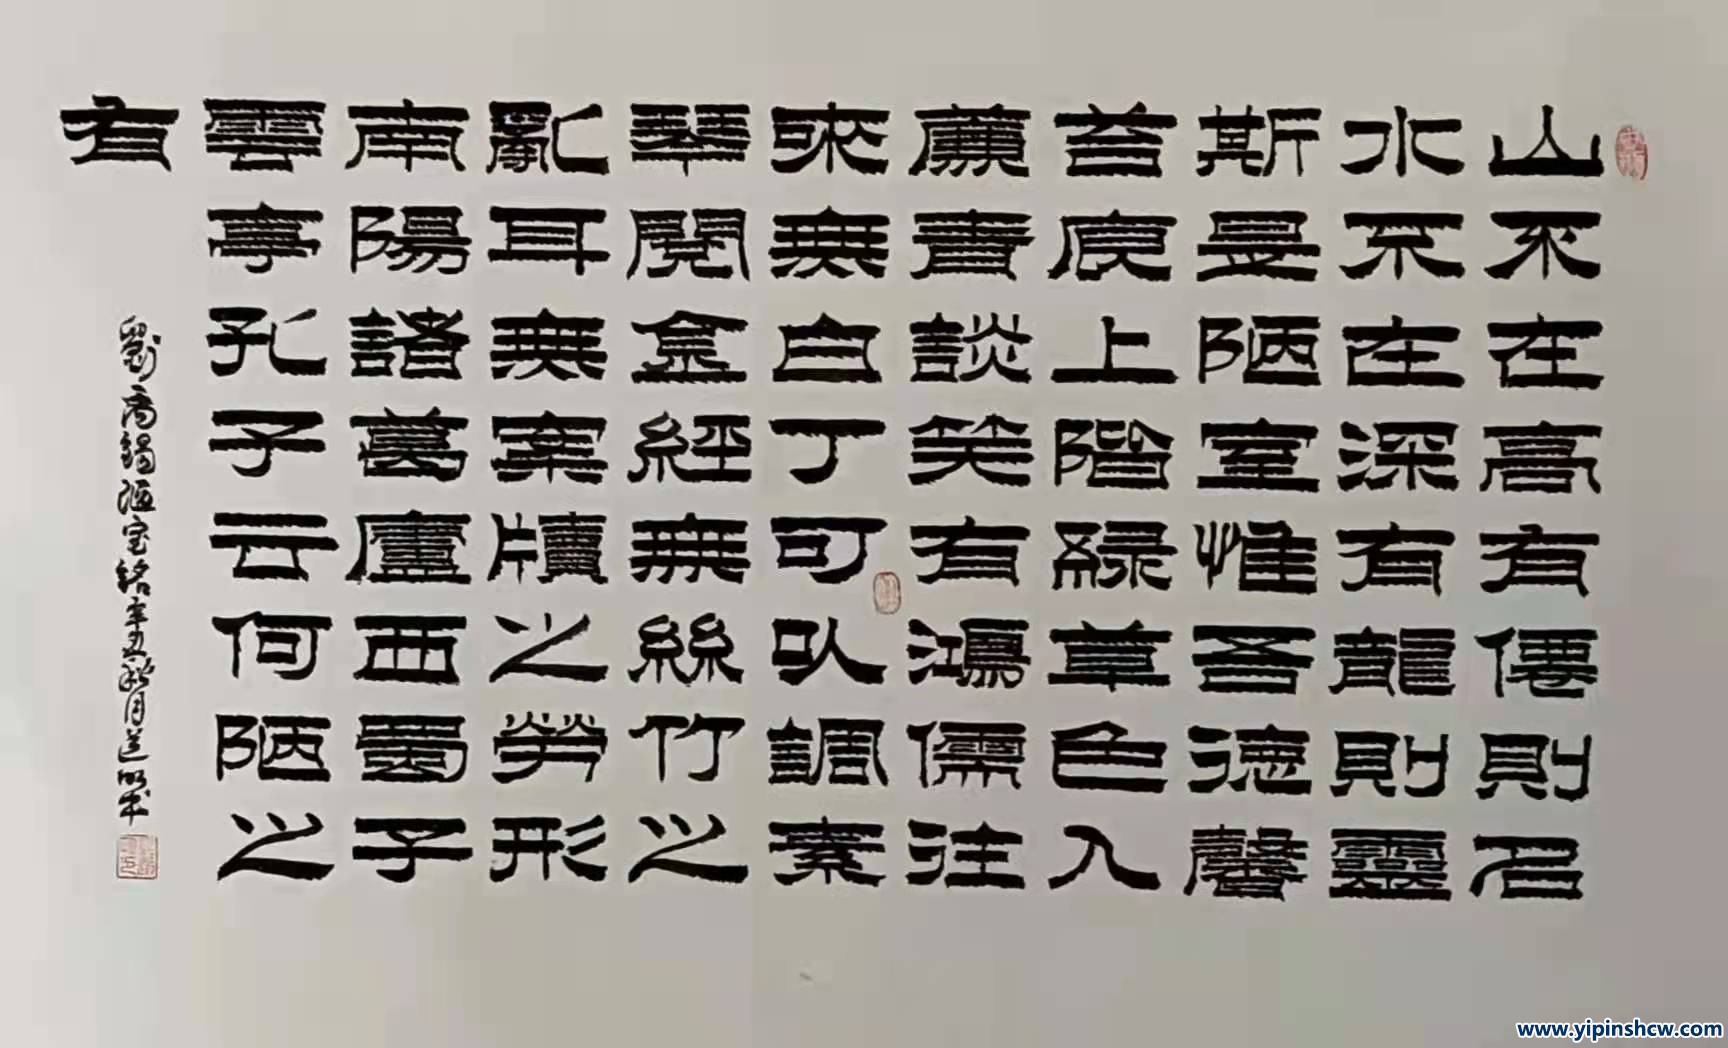 山不在高有僊則名
水不在深有龍則靈
斯是陋室惟吾德馨
苔痕上階綠草色入
簾青談笑有鴻儒往
來無白丁可以調素
琴閱金經無絲竹之
亂耳無案牘之勞形
南陽諸葛廬西蜀子
雲亭孔子云何陋之
有
劉禹錫陋室銘辛丑秋月道明書
www.yipinshcw.com